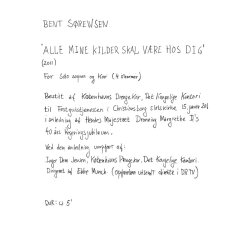 BENT SØRENSEN
"ALLE MINE KILDER SKAL VÆRE HOS DIG"
(2011)
For Solo sopran og Kor (4 stemmer)
Bestilt af Københavns Drengekor, Det Kongelige Kantori
til Festgudstjenesten i Christiansborg slotskirke 15. januar 2012
i anledning af Hendes Majestæt Dronning Margrethe II's
40 års regeringsjubilæum.
Ved den anledning uropført af:
Inger Dam Jensen, Københavns Drengekor, Det Kongelige Kantori
Dirigent af Ebbe Munk (uropførelsen udsendt direkte i DRTV)
DUR: ca 5'